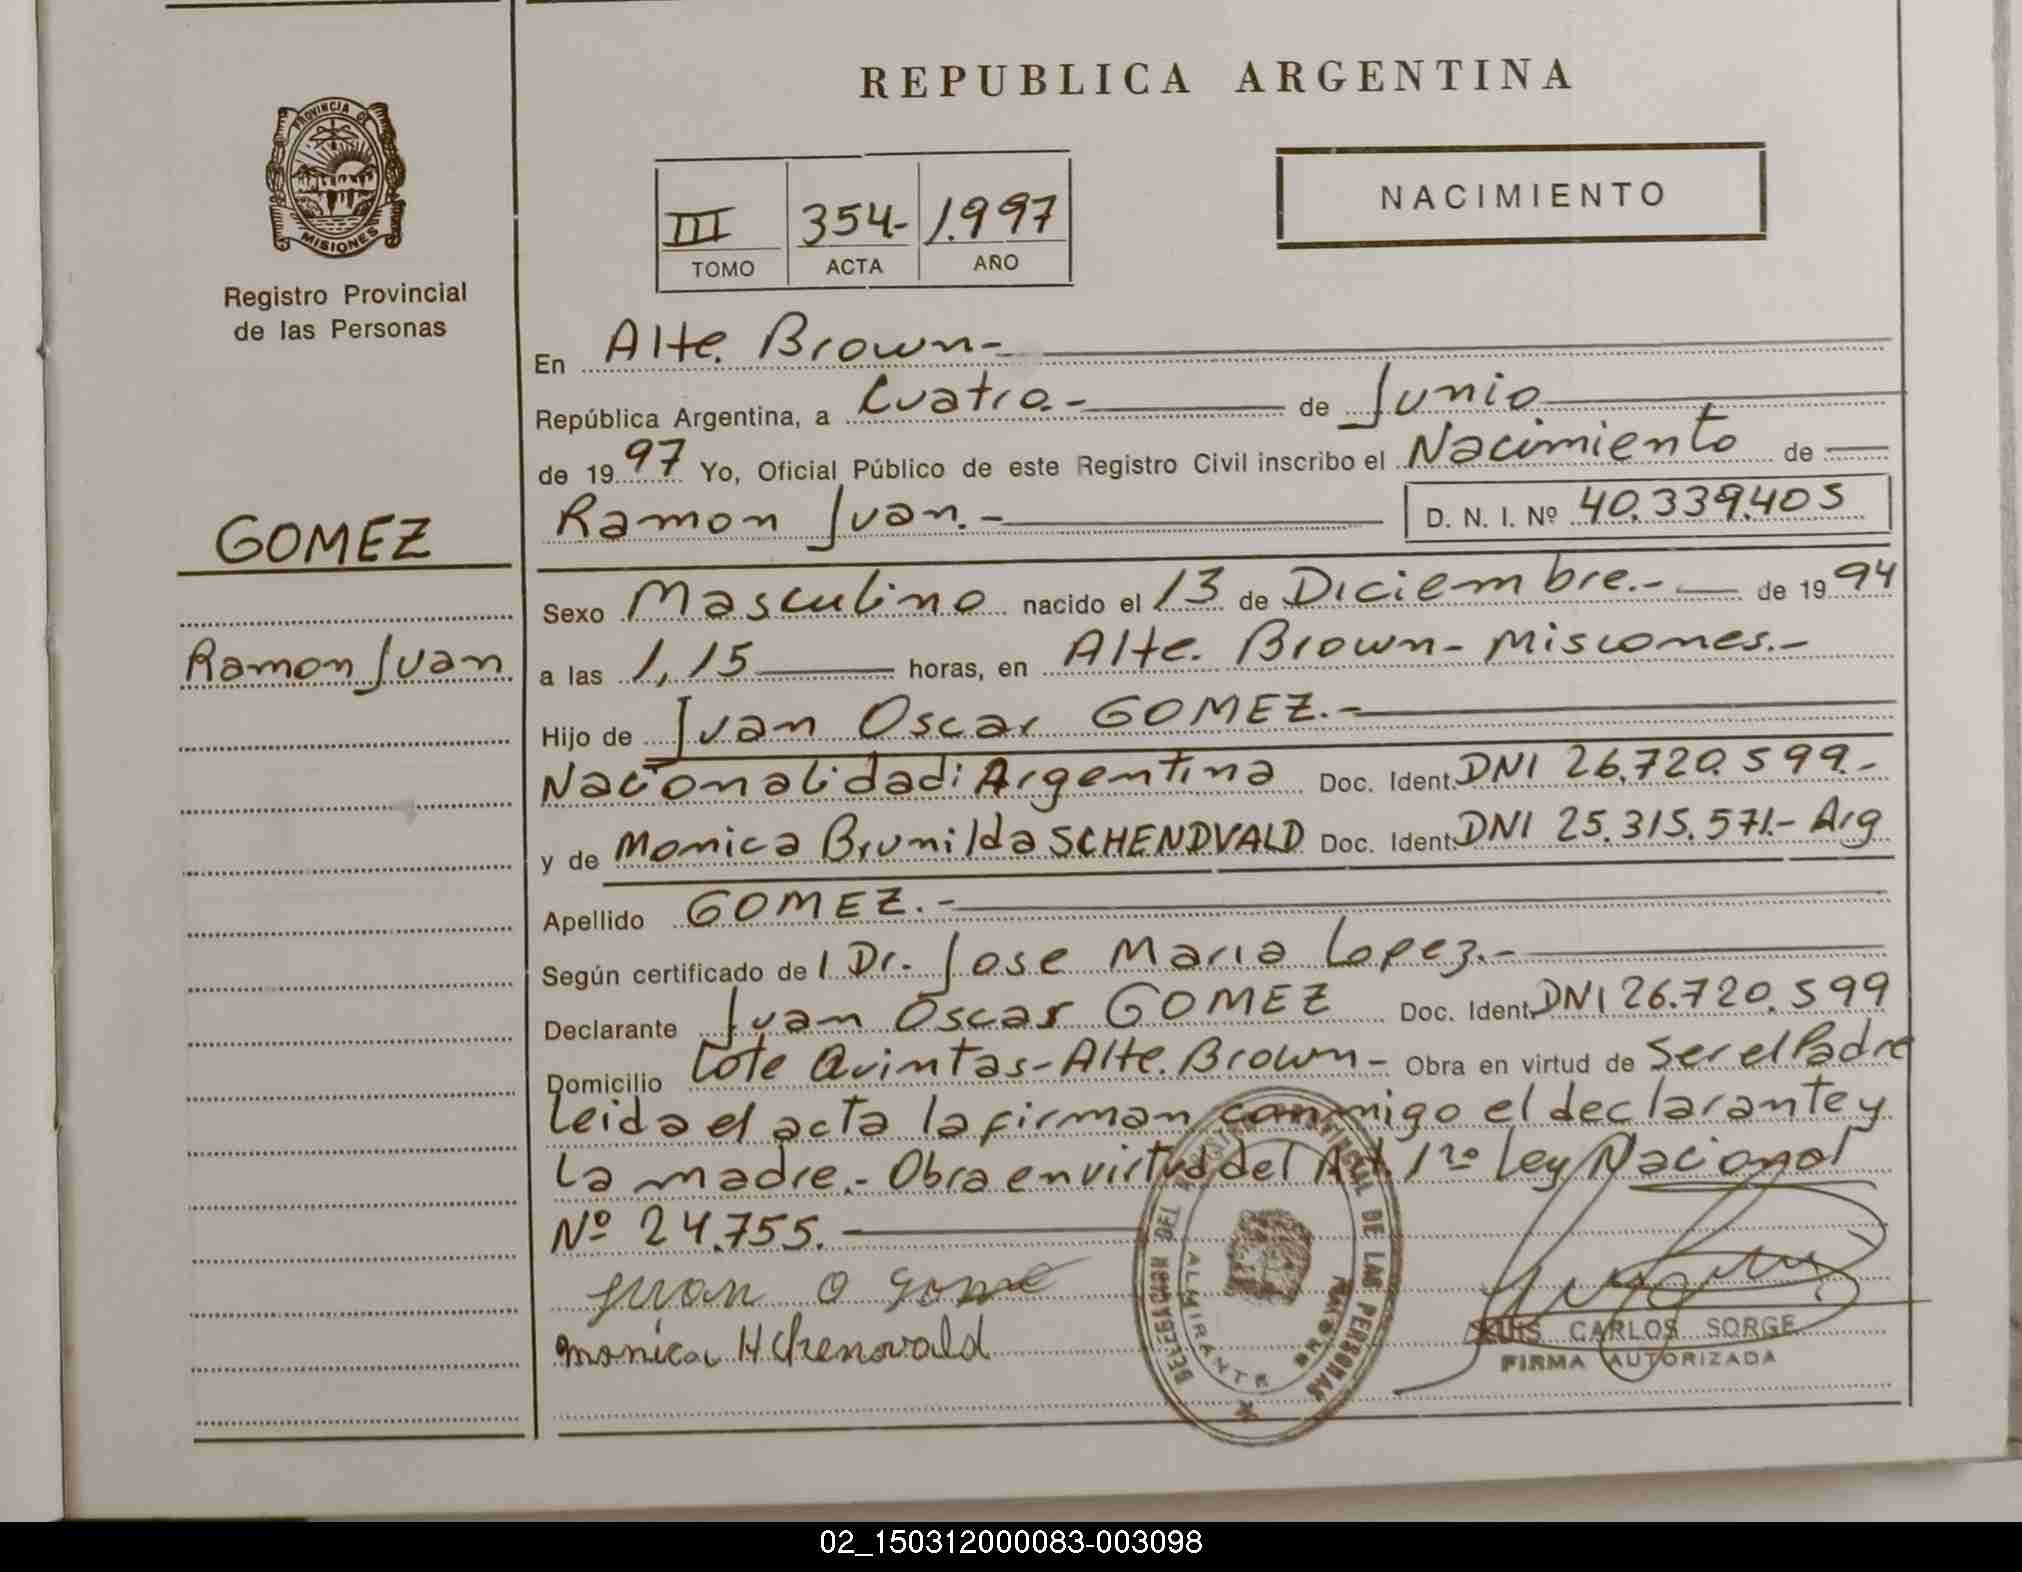 REPUBLICA ARGENTINA
PROVINCIA DE
MISIONES
Registro Provincial
de las Personas
III 354- 1.997
TOMO ACTA AÑO
NACIMIENTO
GOMEZ
Ramon Juan
En Alte. Brown-
República Argentina, a Cuatro.- de Junio
de 1997 Yo, Oficial Público de este Registro Civil inscribo el Nacimiento de
Ramon Juan.- D. N. I. Nº 40.339.405
Sexo Masculino nacido el 13 de Diciembre.- de 1994
a las 1,15 horas, en Alte. Brown- Misiones.-
Hijo de Juan Oscar GOMEZ.-
Nacionalidad: Argentina Doc. Ident. DNI 26.720.599.-
y de Monica Brunilda SCHENDVALD Doc. Ident. DNI 25.315.571.- Arg
Apellido GOMEZ.-
Según certificado de l Dr. Jose Maria Lopez.-
Declarante Juan Oscar GOMEZ Doc. Ident. DNI 26.720.599
Domicilio Lote Quintas-Alte. Brown- Obra en virtud de Ser el Padre
Leida el acta la firman conmigo el declarante y
La madre.- Obra en virtud del Art. 1ro Ley Nacional
Nº 24.755.
juan o gome
monica Hchenovald
DELEGACION DEL REGISTRO PROVINCIAL DE LAS PERSONAS
ALMIRANTE BROWN
LUIS CARLOS SORGE
FIRMA AUTORIZADA
02_150312000083-003098